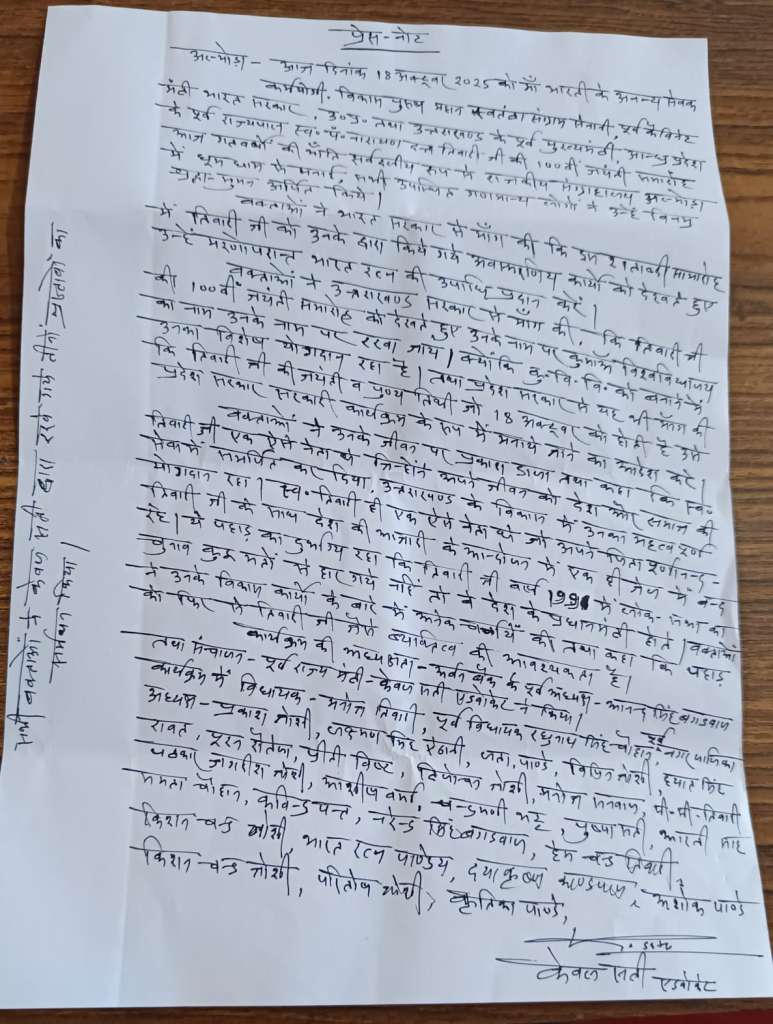 प्रेस-नोट
अल्मोड़ा - आज दिनांक 18 अक्टूबर 2025 को माँ भारती के अनन्य सेवक
कर्मयोगी, विकास पुरुष महान स्वतंत्रता संग्राम सेनानी, पूर्व केबिनेट
मंत्री भारत सरकार, उ०प्र० तथा उत्तराखण्ड के पूर्व मुख्यमंत्री, आन्ध्र प्रदेश
के पूर्व राज्यपाल स्व० पं० नारायण दत्त तिवारी जी की 100वीं जयंती समारोह
आज गतवर्षों की भाँति सर्वदलीय रूप से राजकीय संग्रहालय अल्मोड़ा
में धूम धाम से मनाई, सभी उपस्थित गणमान्य लोगों ने उन्हें विनम्र
श्रद्धा-सुमन अर्पित किये।
वक्ताओं ने भारत सरकार से माँग की कि इस शताब्दी समारोह
में तिवारी जी को उनके द्वारा किये गये अवस्मरणिय कार्यो को देखते हुए
उन्हें मरणोपरान्त भारत रत्न की उपाधि प्रदान करें।
वक्ताओं ने उत्तराखण्ड सरकार से माँग की, कि तिवारी जी
की 100वीं जयंती समारोह को देखते हुए उनके नाम पर कुमाऊँ विश्वविद्यालय
का नाम उनके नाम पर रखा जाय। क्योंकि कु० वि० वि० को बनाने में
उनका विशेष योगदान रहा है। तथा प्रदेश सरकार से यह भी माँग की
कि तिवारी जी की जयंती व पुण्य तिथी जो 18 अक्टूबर को होती है उसे
प्रदेश सरकार सरकारी कार्यक्रम के रूप में मनाये जाने का आदेश करें।
वक्ताओं ने उनके जीवन पर प्रकाश डाला तथा कहा कि स्व०
तिवारी जी एक ऐसे नेता थे जिन्होंने अपने जीवन को देश और समाज की
सेवा में समर्पित कर दिया, उत्तराखण्ड के विकास में उनका महत्वपूर्ण
योगदान रहा। स्व० तिवारी ही एक ऐसे नेता थे जो अपने पिता पूर्णानन्द
तिवारी जी के साथ देश की आजादी के आन्दोलन में एक ही जेल में बन्द
रहे। ये पहाड़ का दुर्भाग्य रहा कि तिवारी जी वर्ष 1991 में लोक-सभा का
चुनाव कुछ मतों से हार गये नहि तो वे देश के प्रधानमंत्री होते। वक्ताओं
ने उनके विकास कार्यो के बारे में अनेक चर्चायें की तथा कहा कि पहाड़
को फिर से तिवारी जी जैसे व्यक्तित्व की आवश्यकता है।
कार्यक्रम की अध्यक्षता - अर्बन बैंक के पूर्व अध्यक्ष - आनन्द सिंह बगडवाल
तथा संचालन - पूर्व राज्य मंत्री - केवल सती एडवोकेट ने किया।
कार्यक्रम में विधायक - मनोज तिवारी, पूर्व विधायक रघुनाथ सिंह चौहान, पूर्व नगर पालिका
अध्यक्ष - प्रकाश जोशी, लक्ष्मण सिंह ऐठानी, पाण्डे, विपिन जोशी, हयात सिंह
रावत, पूरन रौतेला, प्रीती बिष्ट, जोशी, मनोज सनवाल, पी० सी० तिवारी
जगदीश जोशी, आशीष वर्मा, चन्द्रमणी भट्ट, पुष्पा सती, भारती
ममता चौहान, कविन्द्र पन्त, नरेन्द्र सिंह बगडवाल, हेम चन्द्र तिवारी,
किशन चन्द्र जोशी, भारत रत्न पाण्डेय, दयाकृष्ण काण्डपाल, अशोक पाण्डे
किशन चन्द्र जोशी, परितोष जोशी, कृतिका पाण्डे,
केवल सती एडवोकेट
सभी वक्ताओं ने केवल सती द्वारा रखे गये तीनों प्रस्तावों का
समर्थन किया।